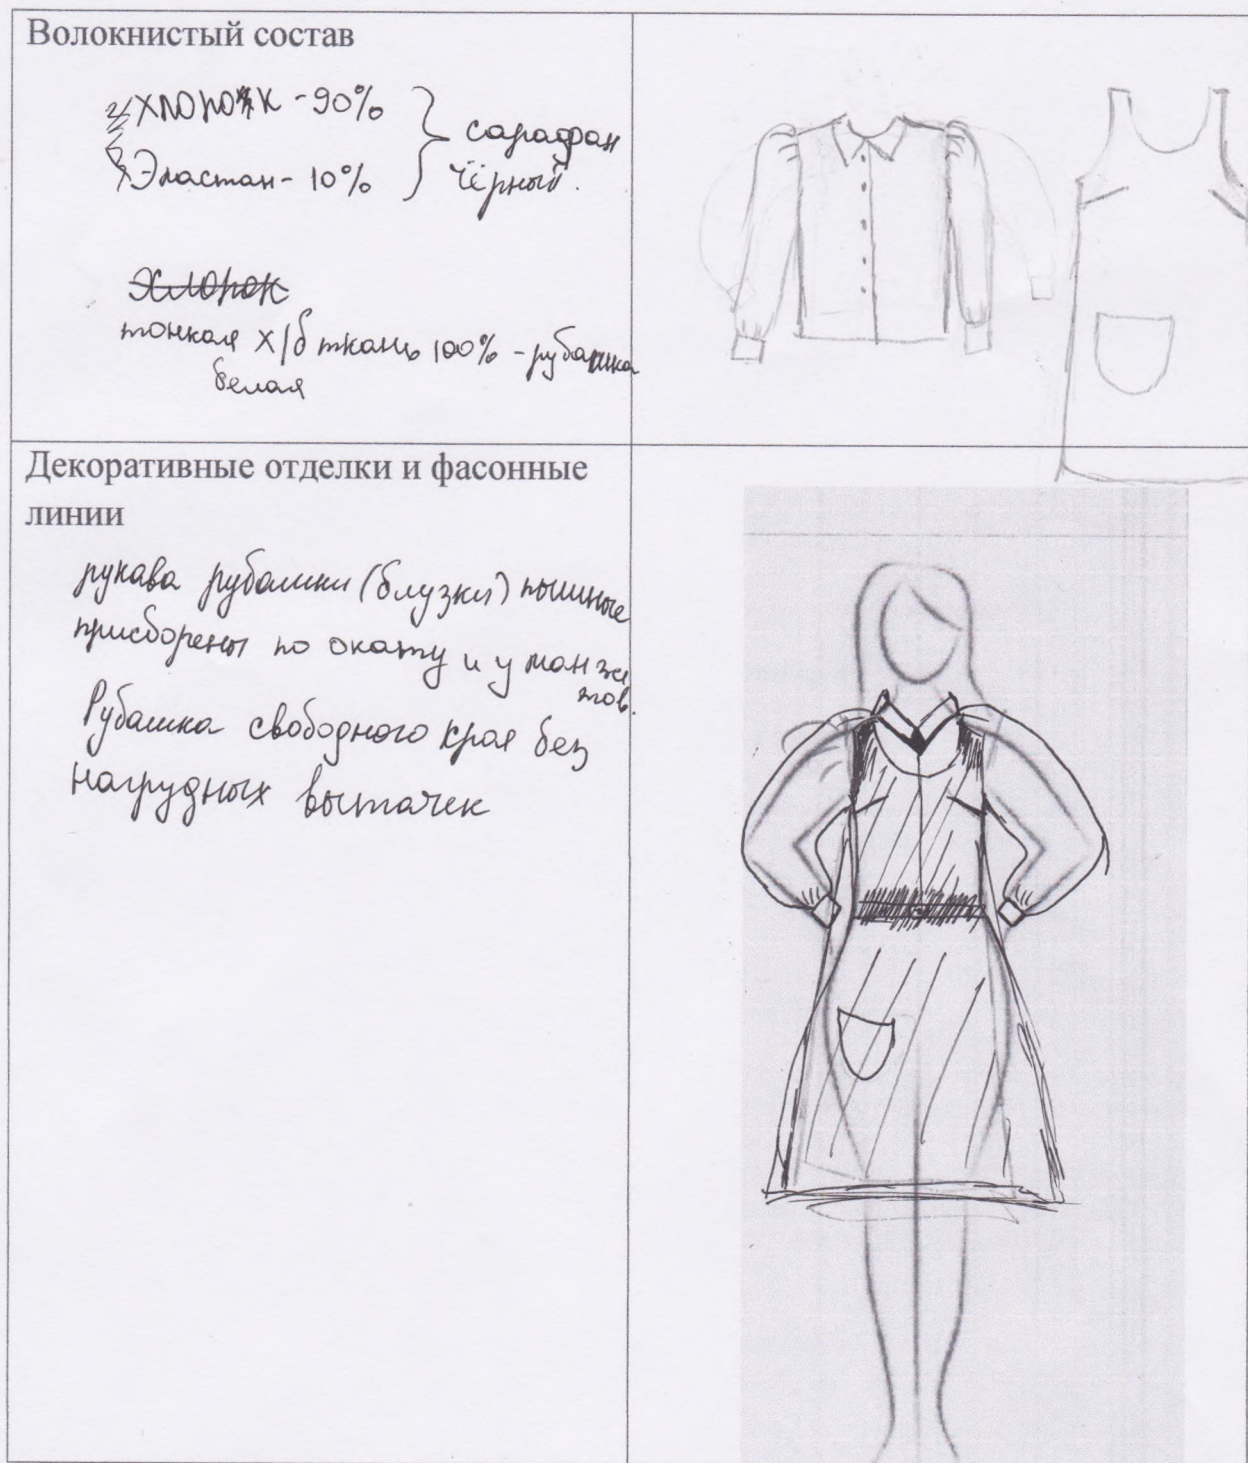 Волокнистый состав
хлопок - 90%
Эластан - 10%
сарафан
чёрный.
Хлопок
тонкая х/б ткань 100% - рубашка
белая
Декоративные отделки и фасонные
линии
рукава рубашки (блузки) пышные
присборены по окату и у манже
тов.
Рубашка свободного кроя без
нагрудных вытачек